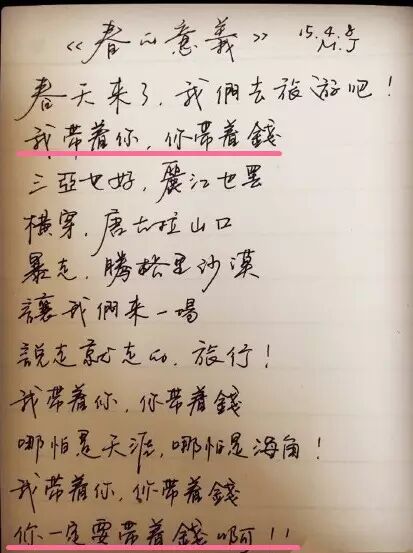 《春的意義》 15.4.8
M.J
春天来了，我們去旅游吧！
我带着你，你带着錢
三亞也好，麗江也罢
橫穿，唐古拉山口
暴走，腾格里沙漠
讓我們来一場
說走就走的，旅行！
我带着你，你带着錢
哪怕是天涯，哪怕是海角！
我带着你，你带着錢
你一定要带着錢啊！！